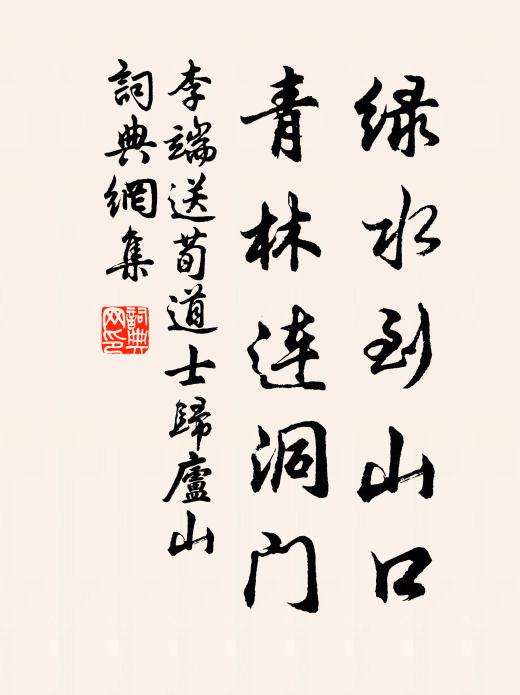 绿水到山口
青林连洞门
李端送荀道士歸廬山
詞典網集
詞典网印